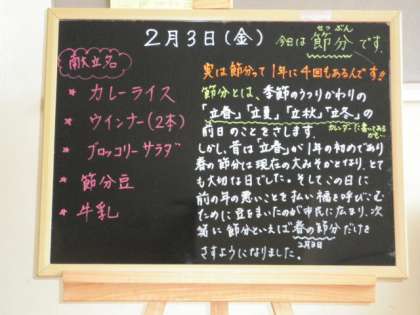 2月3日(金)
今日は節分です。
せつぶん
献立名
* カレーライス
* ウインナー(2本)
* ブロッコリーサラダ
* 節分豆
* 牛乳
実は節分って1年に4回もあるんです!!
節分とは、季節のうつりかわりの
「立春」、「立夏」、「立秋」、「立冬」の
前日のことをさします。
カレンダーに書いてあるかも…
しかし、昔は「立春」が1年の初めであり
春の節分は現在の大みそかとなり、とて
も大切な日でした。そしてこの日に
前の年の悪いことを払い福を呼びこむ
ために豆をまいたのが市民に広まり、次
第に節分といえば春の節分だけを
2月3日
さすようになりました。